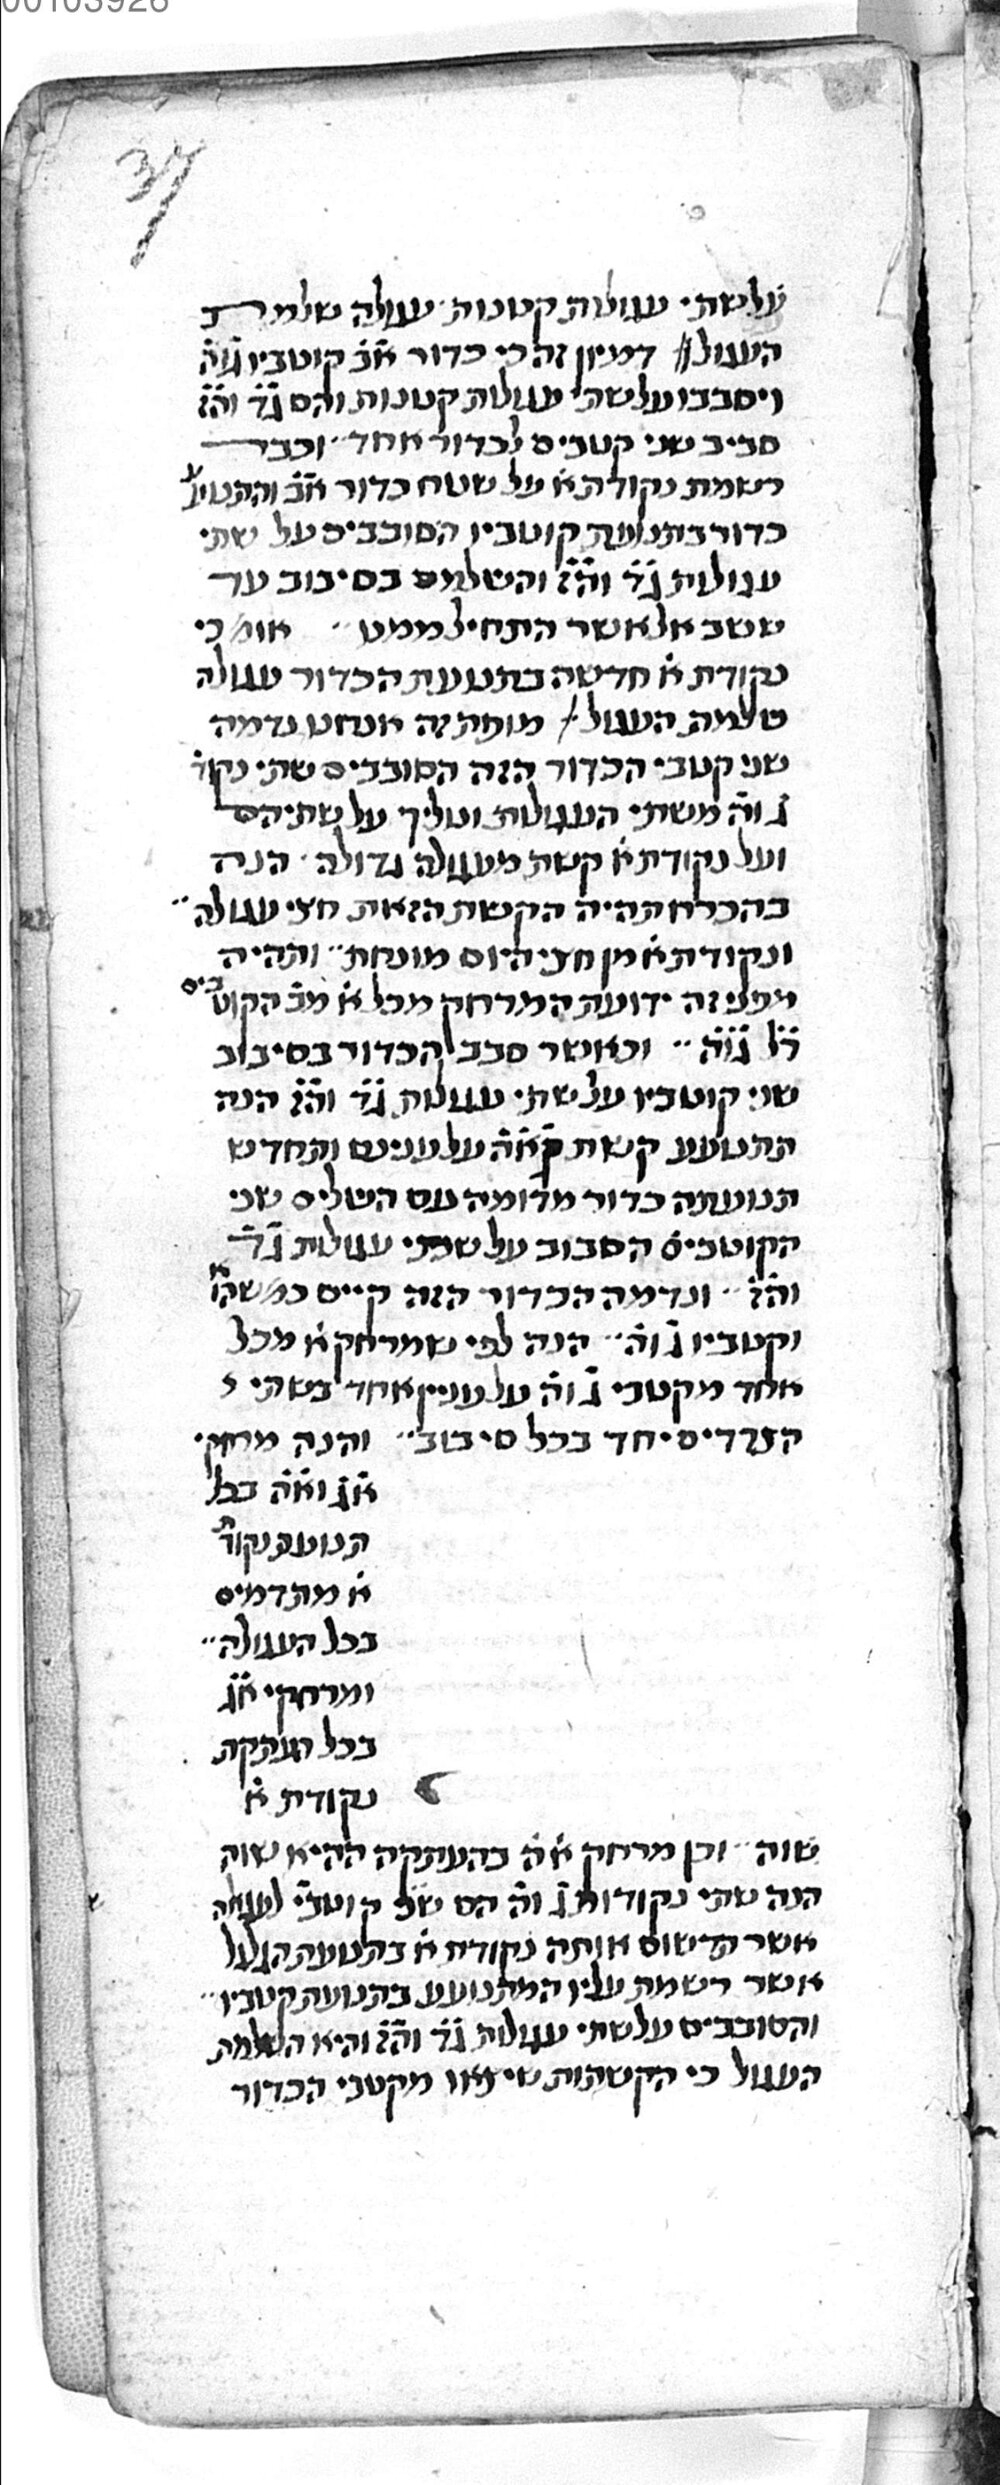 00103926
37
על שתי עגולות קטנות עגולה שלמת
העגול דמיון זה כי כדור אב קוטביו גוה
ויסבבו על שתי עגולות קטנות והם גד והז
סביב שני קטבים לכדור אחד וכבר
רשמת נקודת א על שטח כדור אב והתנועע
כדור בתנועת קוטביו הסובבים על שתי
עגולות גד והז והשלמם בסיבוב עד
ששב אל אשר התחיל ממנו אומ' כי
נקודת א חדשה בתנועת הכדור עגולה
שלמה העגול מופת זה אנחנו נדמה
שני קטבי הכדור הזה הסובבים שתי נקוד
ג וה משתי העגולות ונוליך על שתיהם
ועל נקודת א קשת מעגולה גדולה הנה
בהכרח תהיה הקשת הזאת חצי עגולה
ונקודת א מן חצי היום מונחת ותהיה
מפני זה ידועת המרחק מכל א מב הקוטבים
רל גוה וכאשר סבב הכדור בסיבוב
שני קוטביו על שתי עגולות גד והז הנה
התנועע קשת גאה על ענינם ותחדש
תנועתה כדור מדומה עם השלים שני
הקוטבים הסבוב על שתי עגולות גד
והז ונדמה הכדור הזה קיים כמ' שהוא
וקטביו ג וה הנה לפי שמרחק א מכל
אחד מקטבי ג וה על ענין אחד בשתי
הצדדים יחד בכל סיבוב והנה מרחקי
אג ואה בכל
תנועת נקודת
א מתדמים
בכל העגולה
ומרחקי אג
בכל העתקת
נקודת א
שוה וכן מרחק אה בהעתקה ההיא שוה
הנה שתי נקודות ג וה הם שני קוטבי לעגולה
אשר תרשום אותה נקודת א בתנועת הגלגל
אשר רשמת עליו המתנועע בתנועת קטביו
והסובבים על שתי עגולות גד והז והיא השלמת
העגול כי הקשתות שיצאו מקטבי הכדור